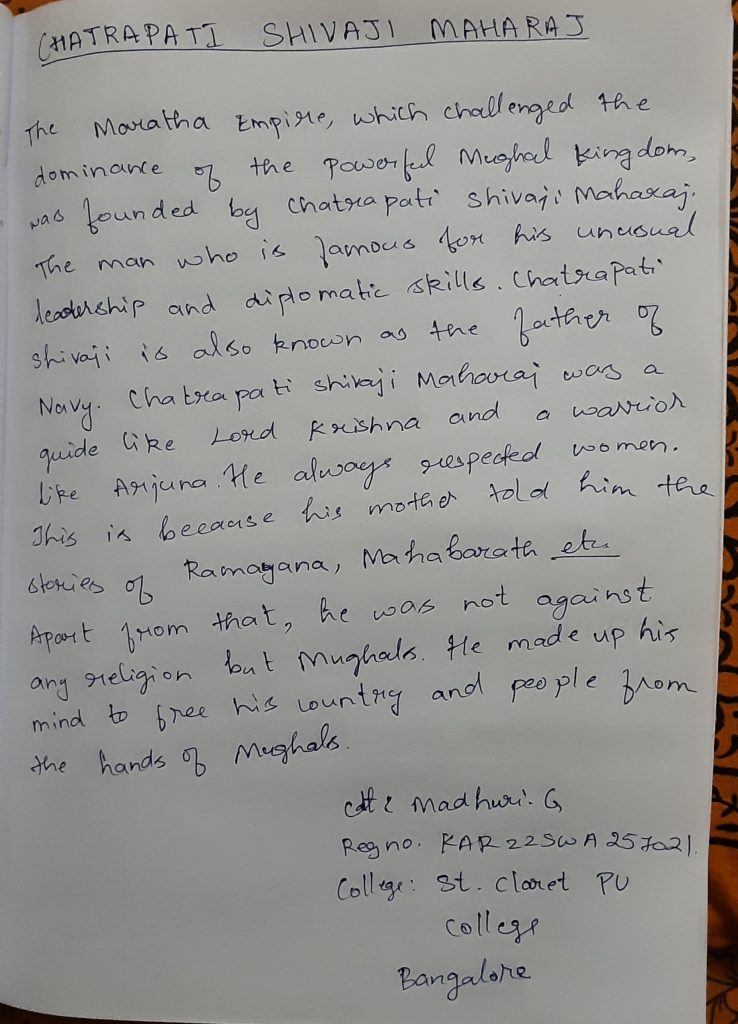 CHATRAPATI SHIVAJI MAHARAJ
The Maratha Empire, which challenged the
dominance of the powerful Mughal kingdom,
was founded by Chatrapati Shivaji Maharaj.
The man who is famous for his unusual
leadership and diplomatic skills. Chatrapati
Shivaji is also known as the father of
Navy. Chatrapati Shivaji Maharaj was a
guide like Lord Krishna and a warrior
like Arjuna. He always respected women.
This is because his mother told him the
stories of Ramayana, Mahabarath etc
Apart from that, he was not against
any religion but Mughals. He made up his
mind to free his country and people from
the hands of Mughals.
Cdt : Madhuri. G
Reg no. KAR22SWA257021.
College: St. Claret PU
College
Bangalore